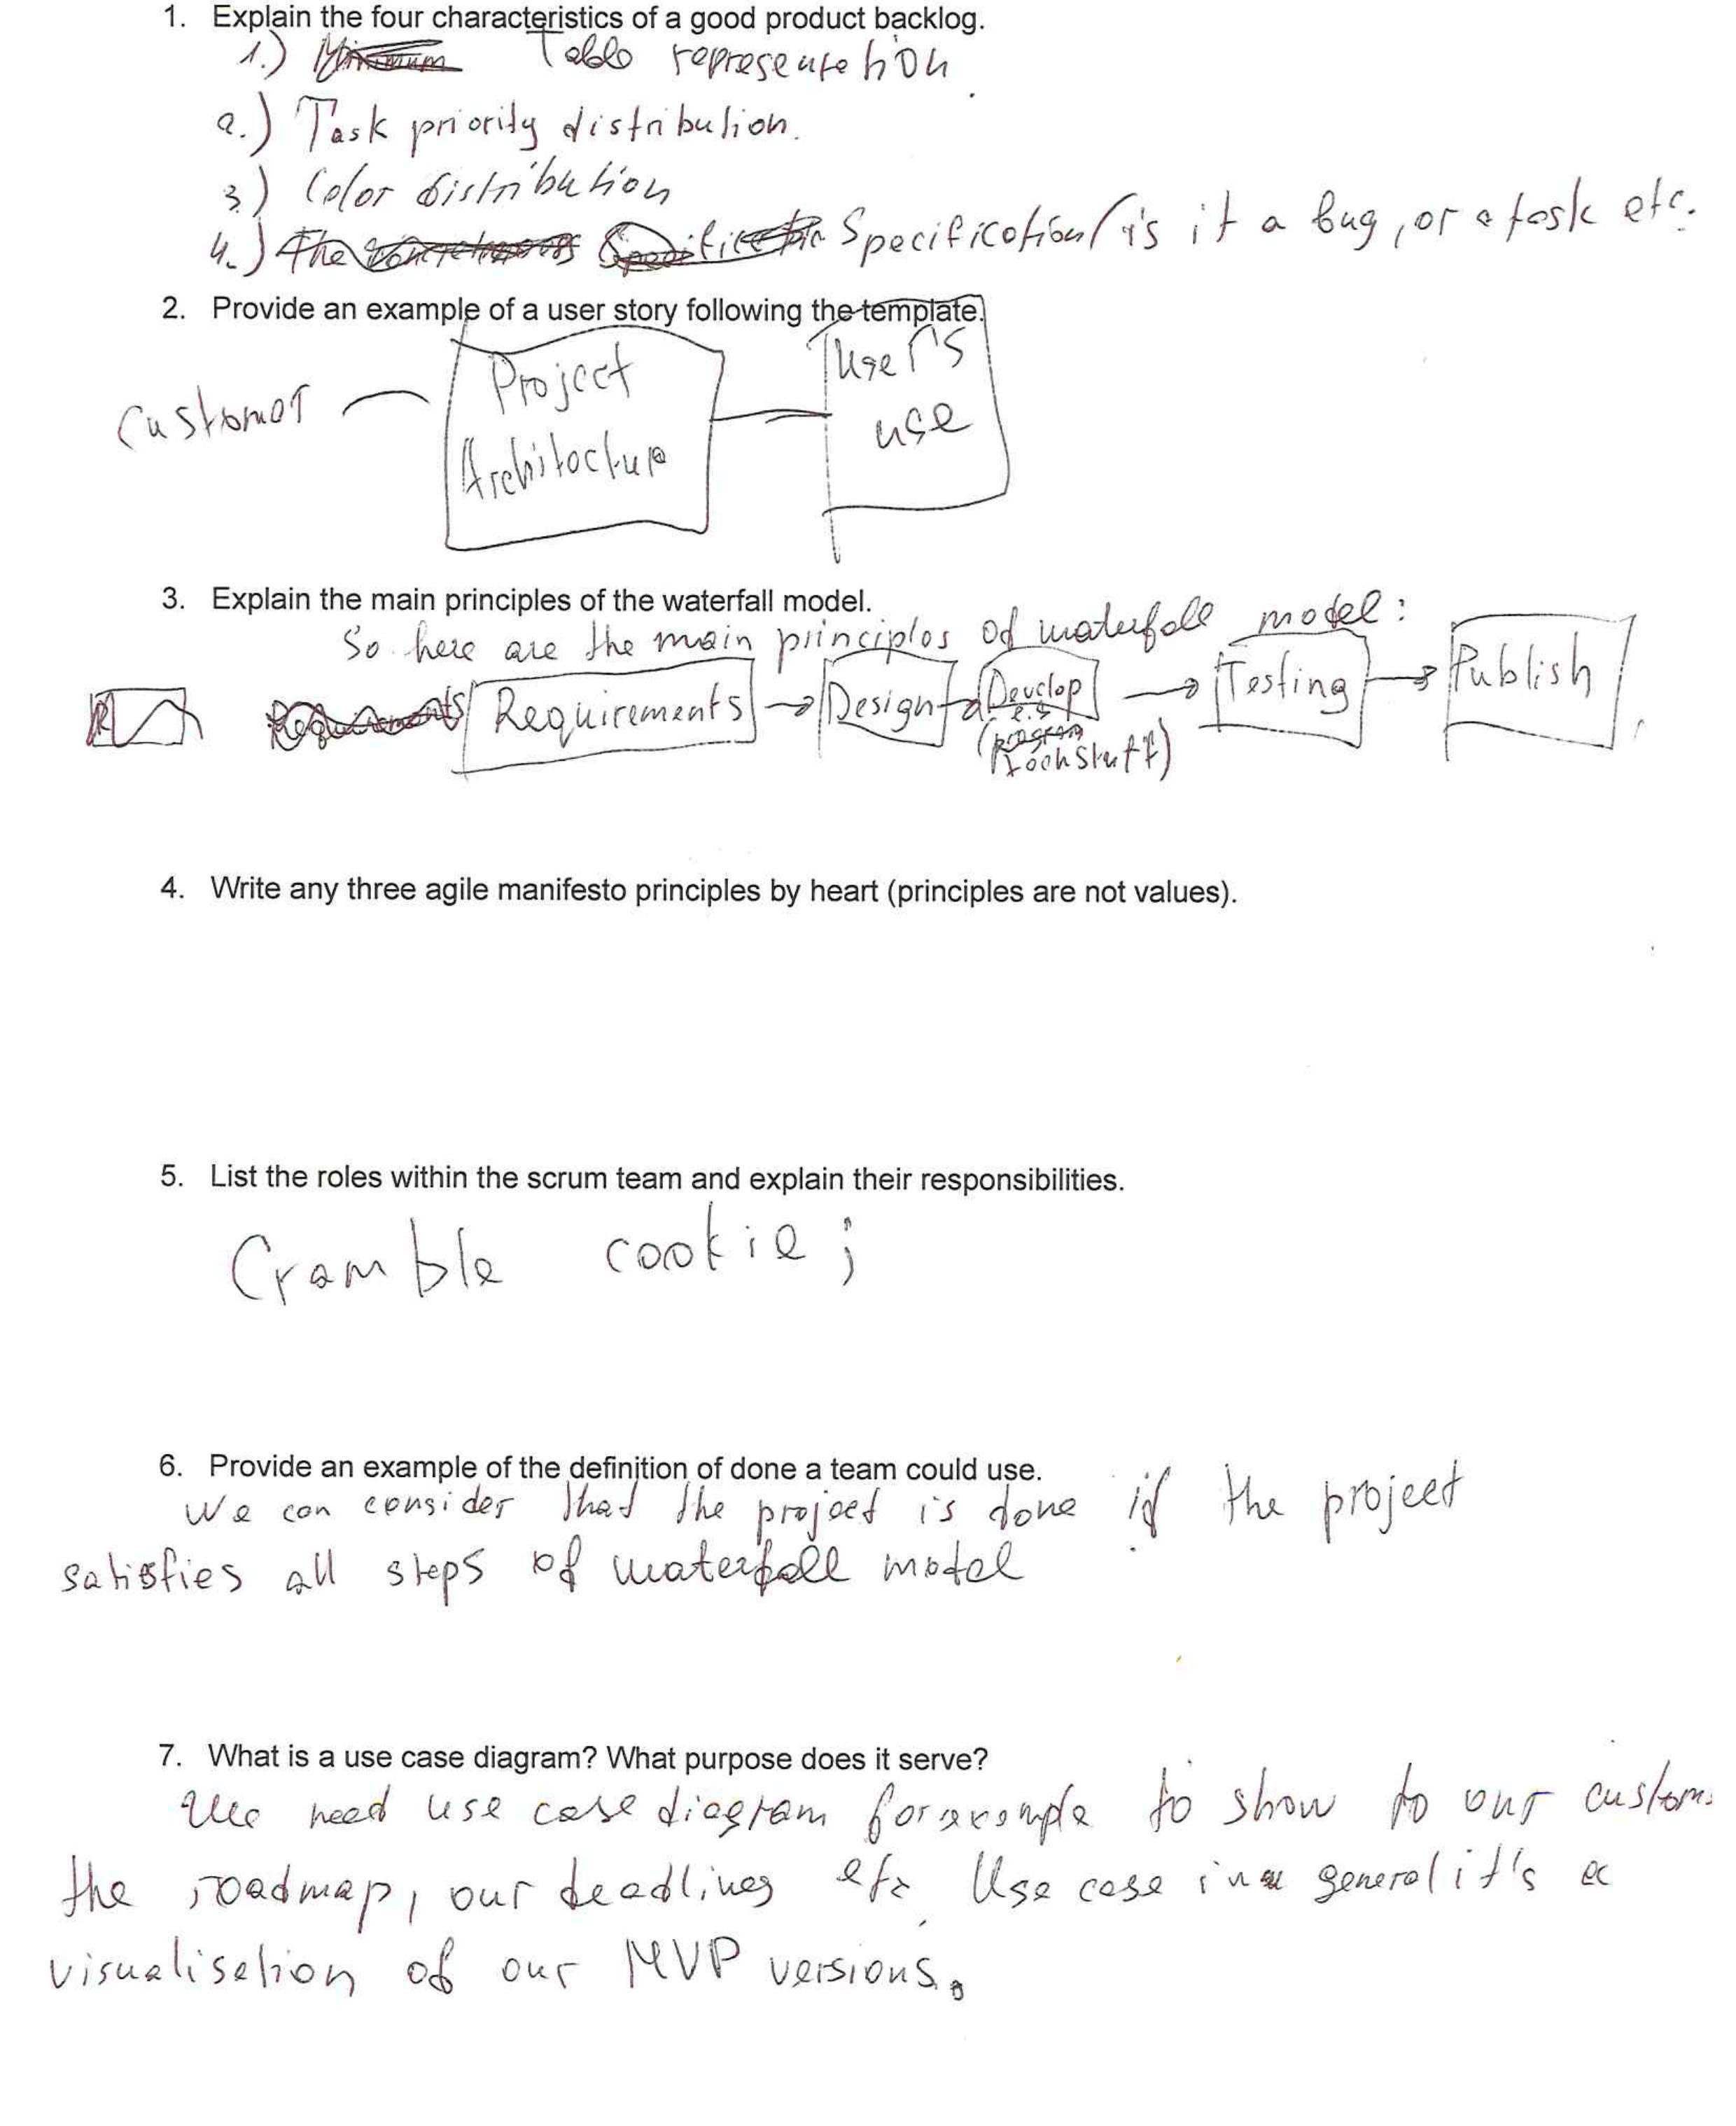 1. Explain the four characteristics of a good product backlog.
1.) Minimum Table representation.
2.) Task priority distribution.
3) Color distribution
4.) The Specification (is it a bug, or a task etc.
2. Provide an example of a user story following the template.
Customer
Project
Architectup
User's
use
3. Explain the main principles of the waterfall model.
So here are the main principles of waterfall model:
R
Requirements Requirements
Design
Develop
e.g
(program
tech stuff)
Testing
Publish
4. Write any three agile manifesto principles by heart (principles are not values).
5. List the roles within the scrum team and explain their responsibilities.
Cramble cookie;
6. Provide an example of the definition of done a team could use.
We can consider that the project is done if the project
satisfies all steps of waterfall model
7. What is a use case diagram? What purpose does it serve?
We need use case diagram for example to show to our custom
the roadmap, our deadlines etc. Use case in general it's a
visualisation of our MVP versions.